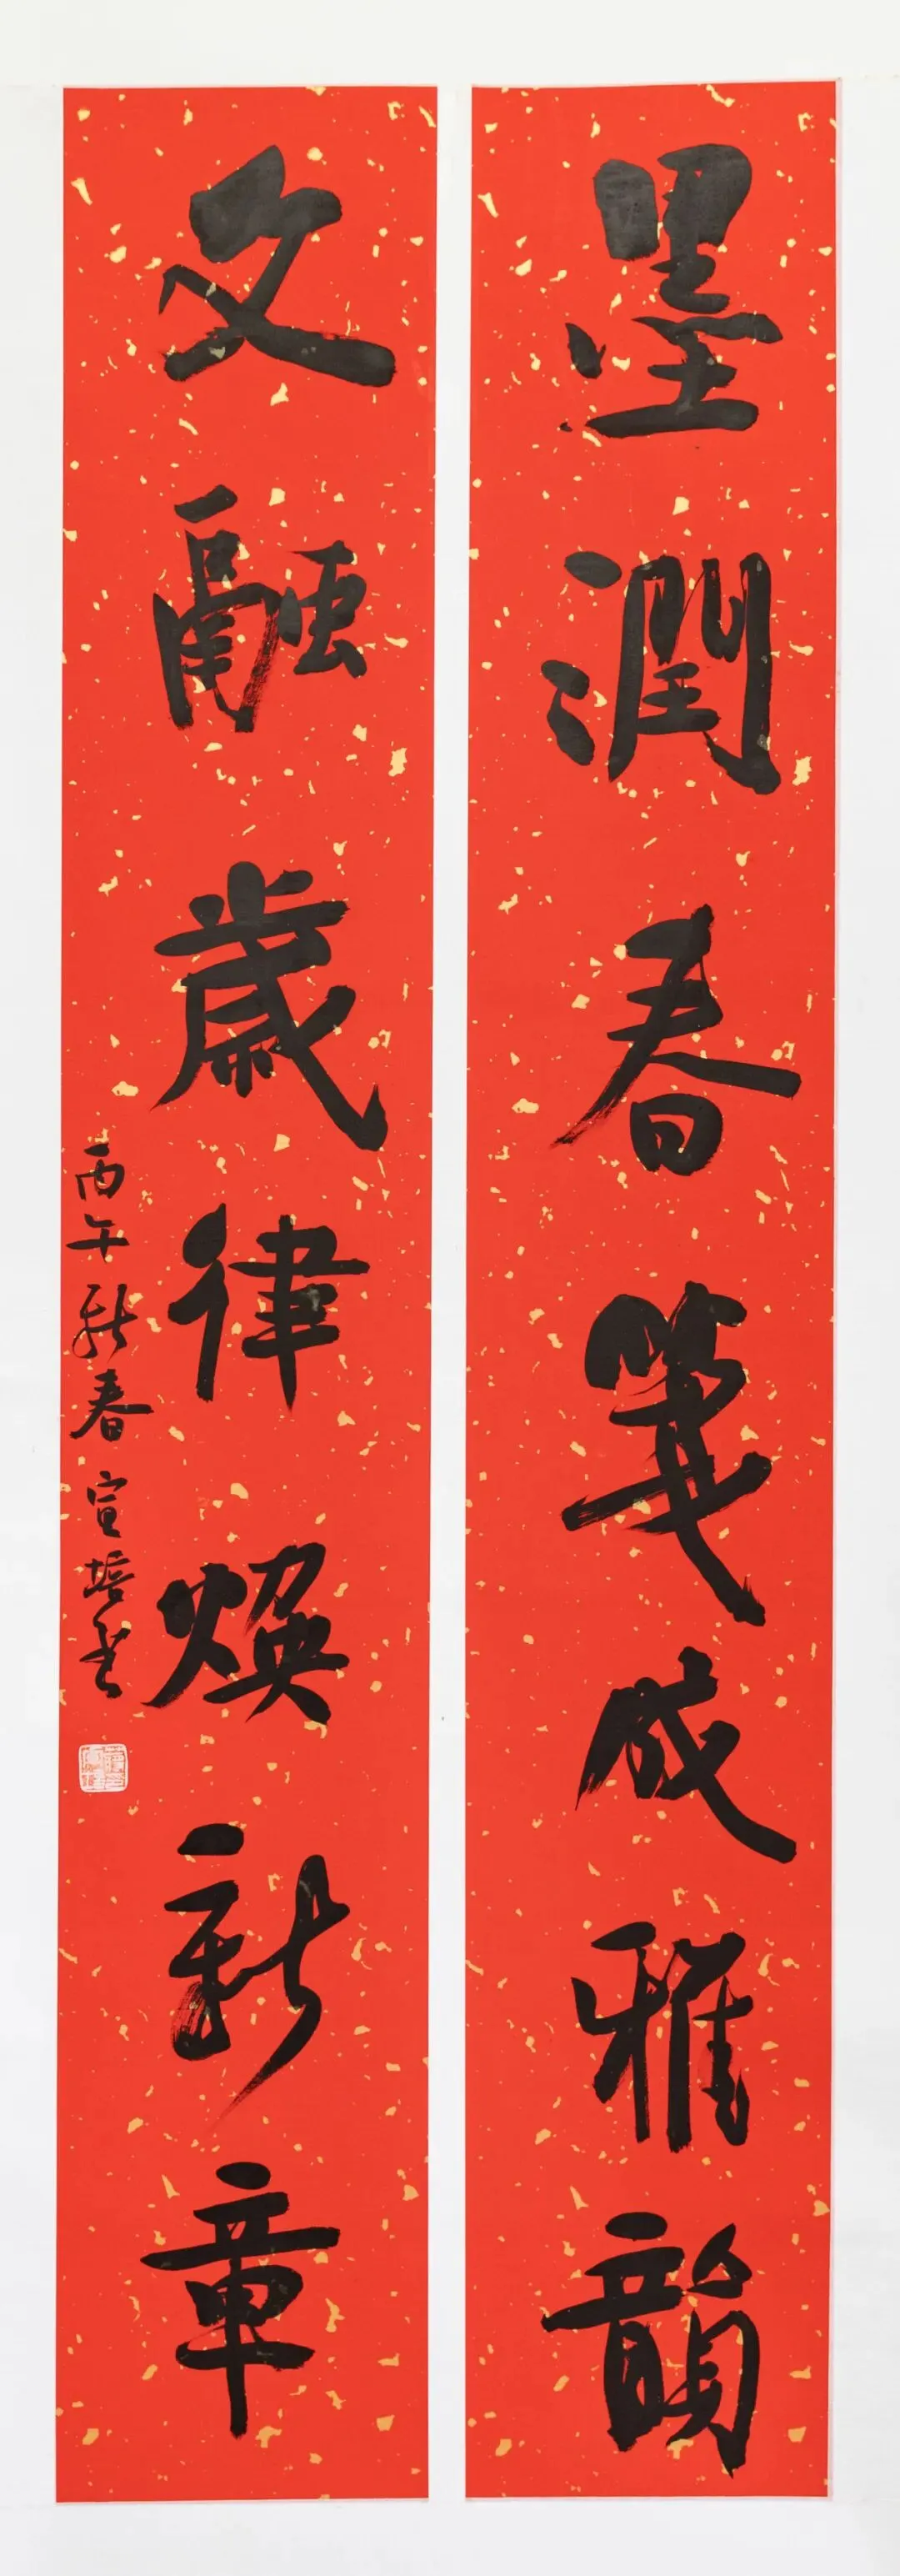 墨潤春笺成雅韻
文融歲律焕新章
丙午新春 宣培書